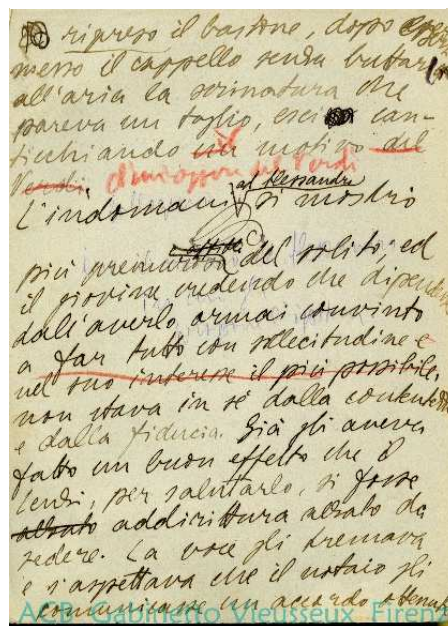 ripreso il bastone, dopo essersi
messo il cappello senza buttare
all'aria la scrinatura che
pareva un taglio, escì can-
ticchiando un motivo del
Verdi.
del Verdi
ad Alessandro
L'indomani, si mostrò
più premuroso del solito; ed
il giovine credendo che dipend
dall'averlo ormai convinto
a far tutto con sollecitudine e
nel suo interesse il più possibile,
non stava in sé dalla contente
e dalla fiducia. Già gli aveva
fatto un buon effetto che il
per salutarlo, si fosse
alzato addirittura alzato da
sedere. La voce gli tremava
e s'aspettava che il notaio gli
comunicasse un accordo ottenut
ACB Gabinetto Vieusseux Firenz